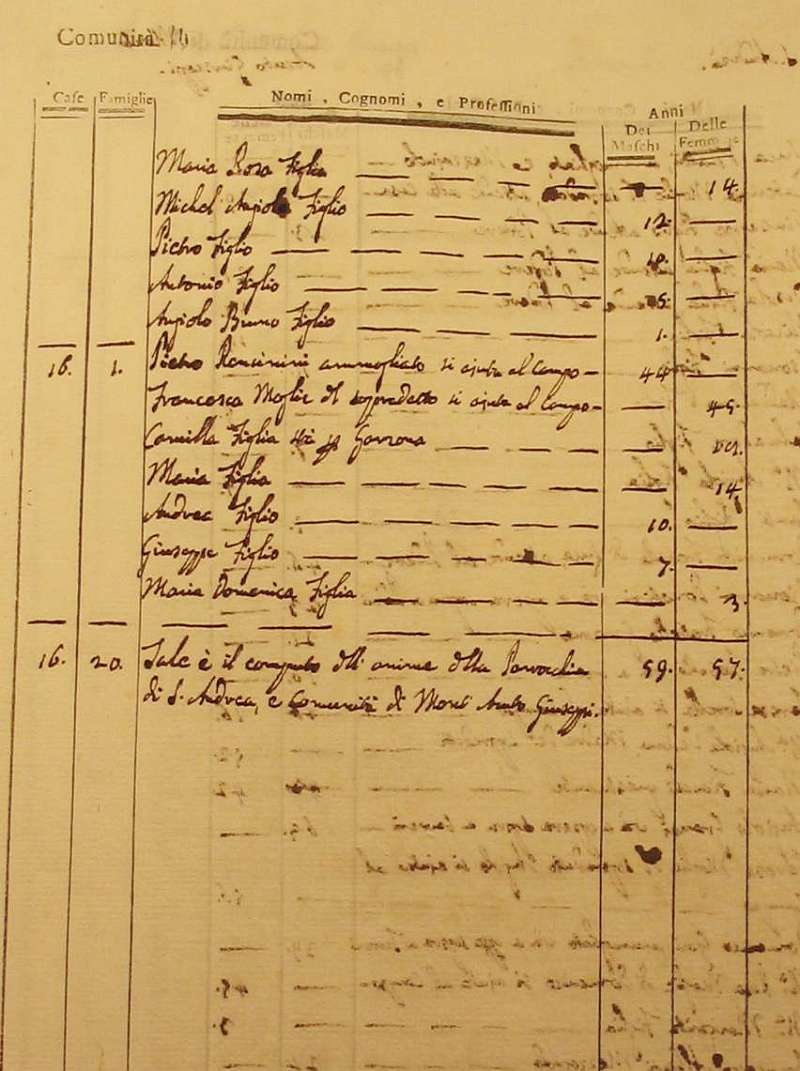 Comunità di
Case Famiglie Nomi, Cognomi, e Professioni Anni
Dei Maschi Delle Femmine
Maria Rosa Figlia 14.
Michel Angiolo Figlio 12.
Pietro Figlio
Antonio Figlio 5.
Angiolo Bruno Figlio 1.
16. 1. Pietro ammogliato si ajuta al Campo 44
Francesca Moglie del sopradetto si ajuta al Campo 45.
Camilla Figlia sta p Garzona
Maria Figlia 14
Andrea Figlio 10.
Giuseppe Figlio 7.
Maria Domenica Figlia 3.
16. 20. Tale è il computo dell' anime della Parrochia 59. 57.
di S. Andrea, e Comunità di Giuseppi.